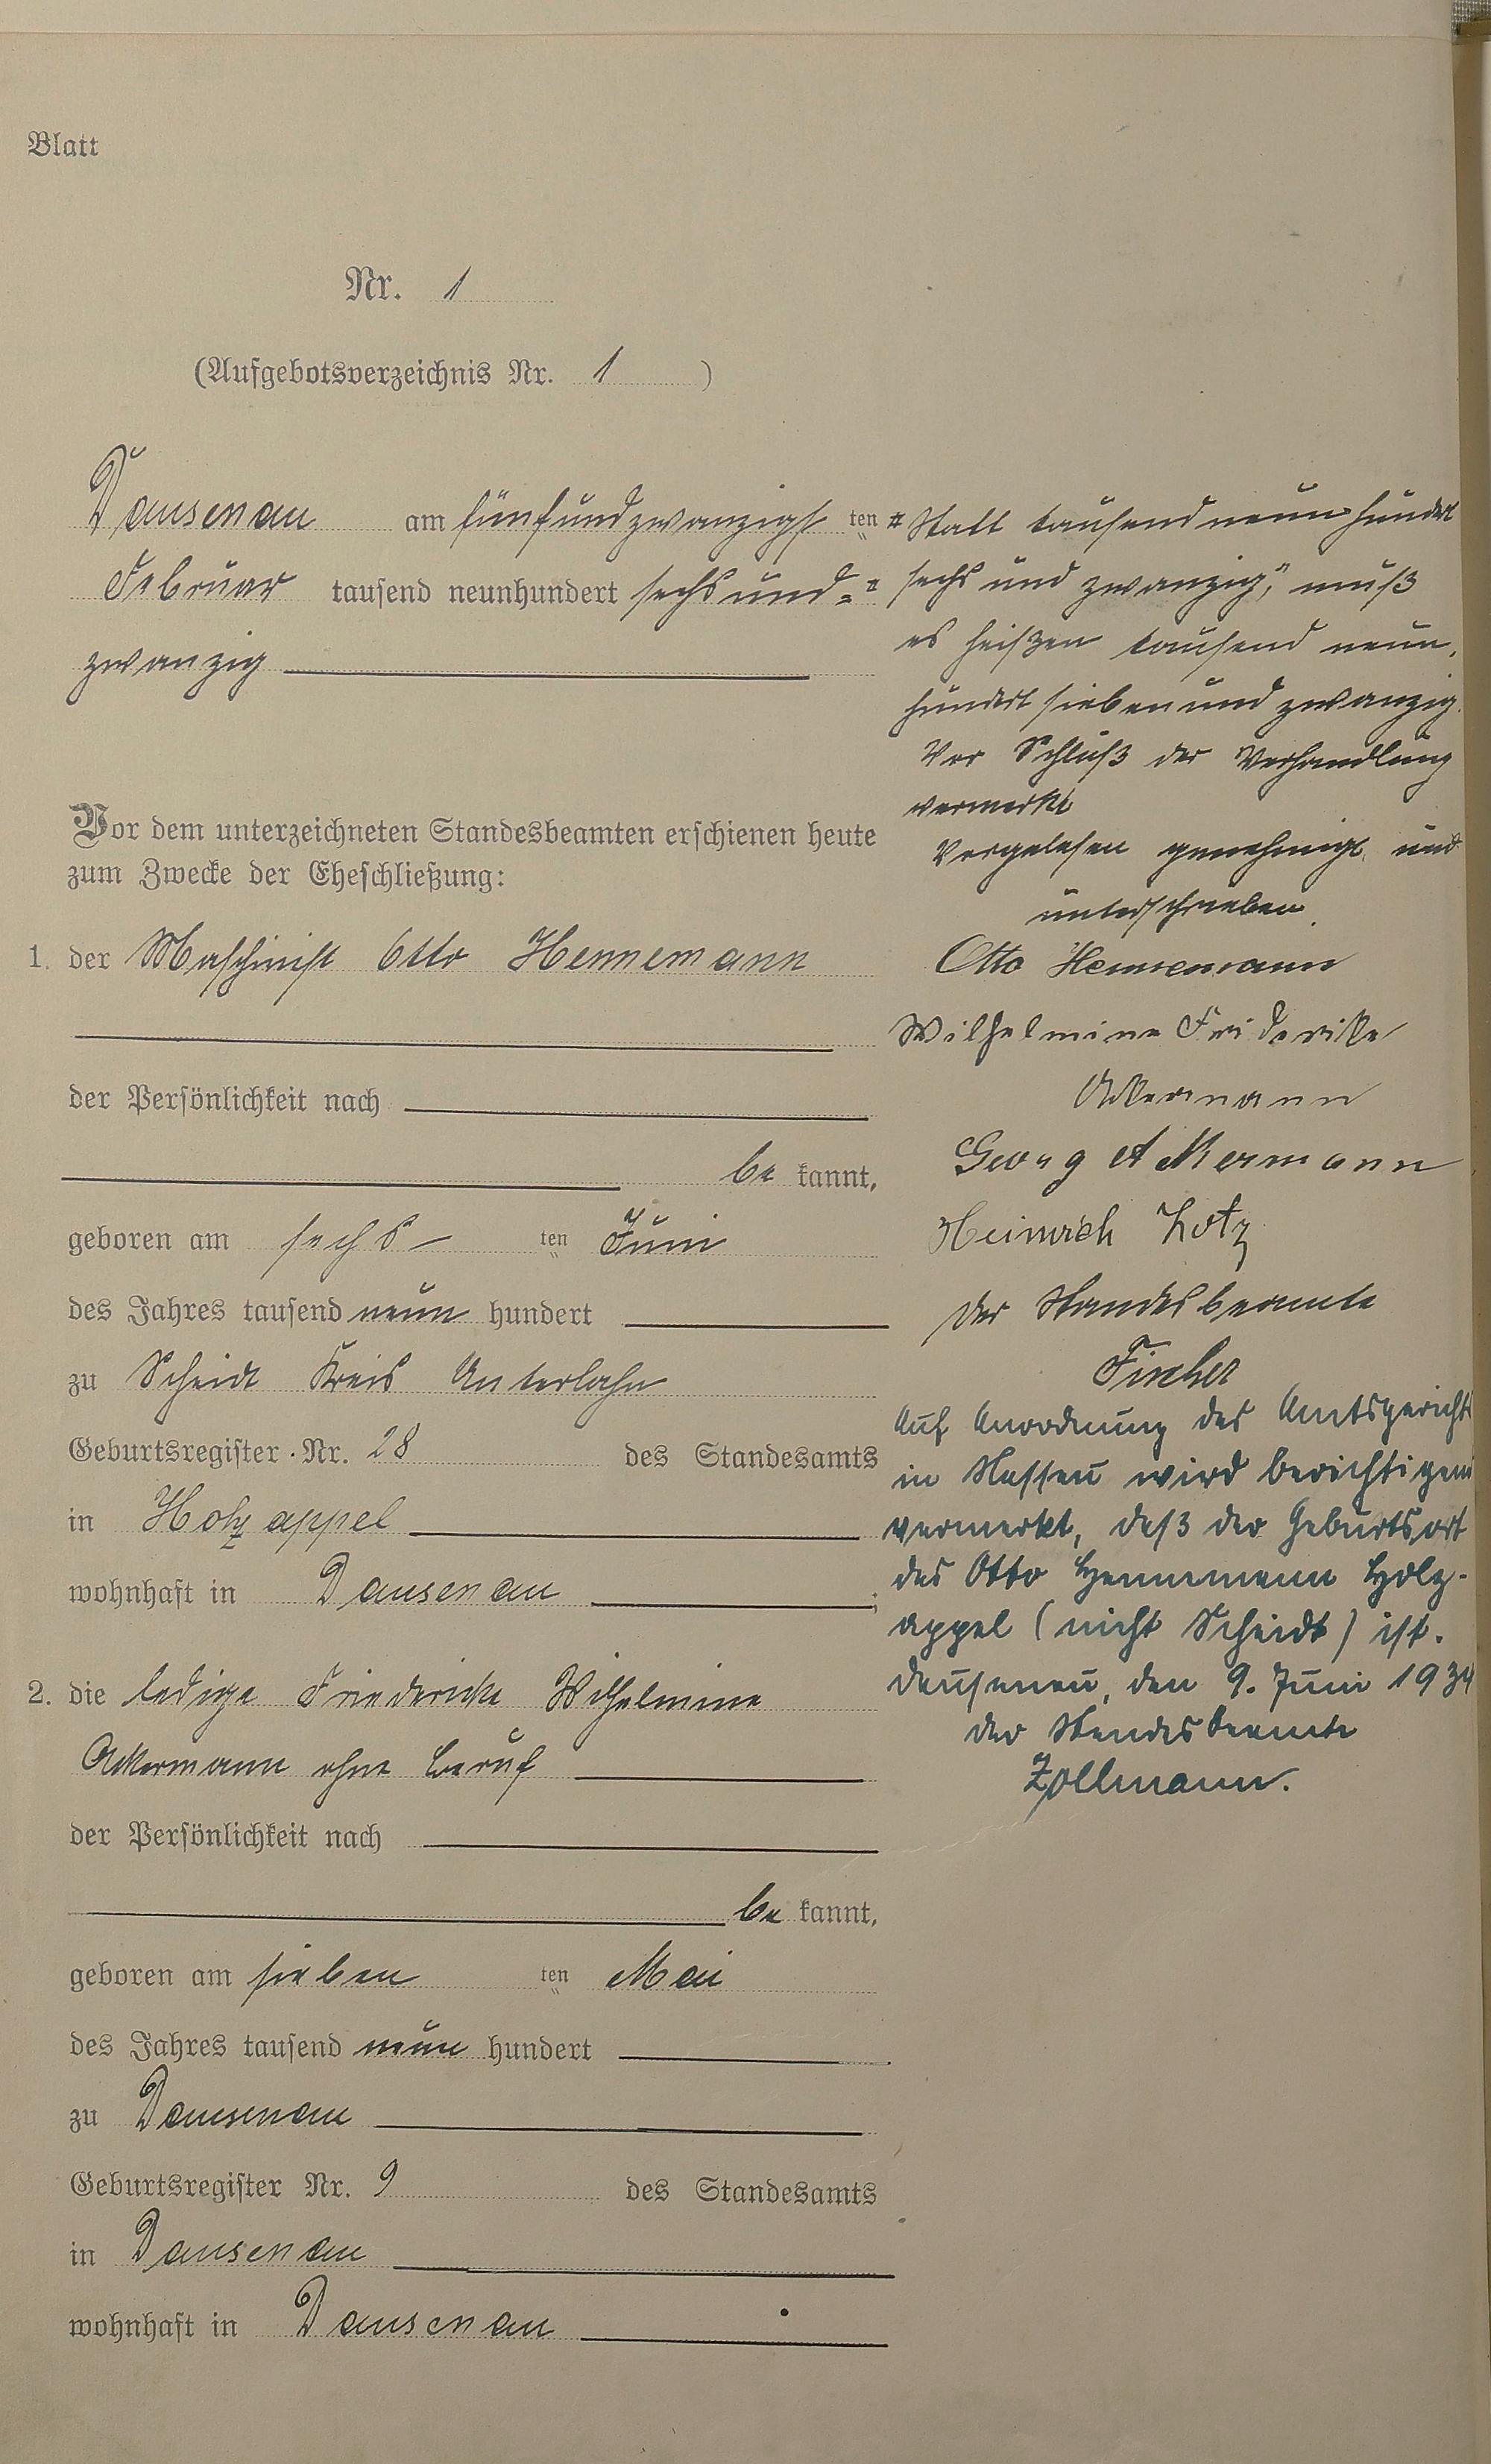 Blatt
Nr. 1
(Aufgebotsverzeichnis Nr. 1 )
Dausenau am fünfundzwanzigst ten
Februar tausend neunhundert sechs und=
zwanzig
Vor dem unterzeichneten Standesbeamten erschienen heute
zum Zwecke der Eheschließung:
1. der Maschinist Otto Hennemann
der Persönlichkeit nach
be kannt,
geboren am sechs ten Juni
des Jahres tausend neun hundert
zu Scheidt Kreis Unterlahn
Geburtsregister-Nr. 28 des Standesamts
in Holzappel
wohnhaft in Dausenau ;
2. die ledige Friedericke Wilhelmine
Ackermann ohne Beruf
der Persönlichkeit nach
be kannt,
geboren am sieben ten Mai
des Jahres tausend neun hundert
zu Dausenau
Geburtsregister Nr. 9 des Standesamts
in Dausenau
wohnhaft in Dausenau
# Statt tausend neun hundert
sechs und zwanzig", muß
es heißen tausend neun,
hundert sieben und zwanzig.
Vor Schluß der Verhandlung
vermerkt
Vorgelesen genehmigt und
unterschrieben.
Otto Hennemann
Wilhelmine Friderike
Ackermann
Georg Akermann
Heinrich Lotz
Der Standesbeamte
Fischer
Auf Anordnung des Amtsgerichts
in Nassau wird berichtigend
vermerkt, daß der Geburtsort
des Otto Hennemann Holz-
appel (nicht Scheidt) ist.
Dausenau, den 9. Juni 1934
Der Standesbeamte
Zollmann.